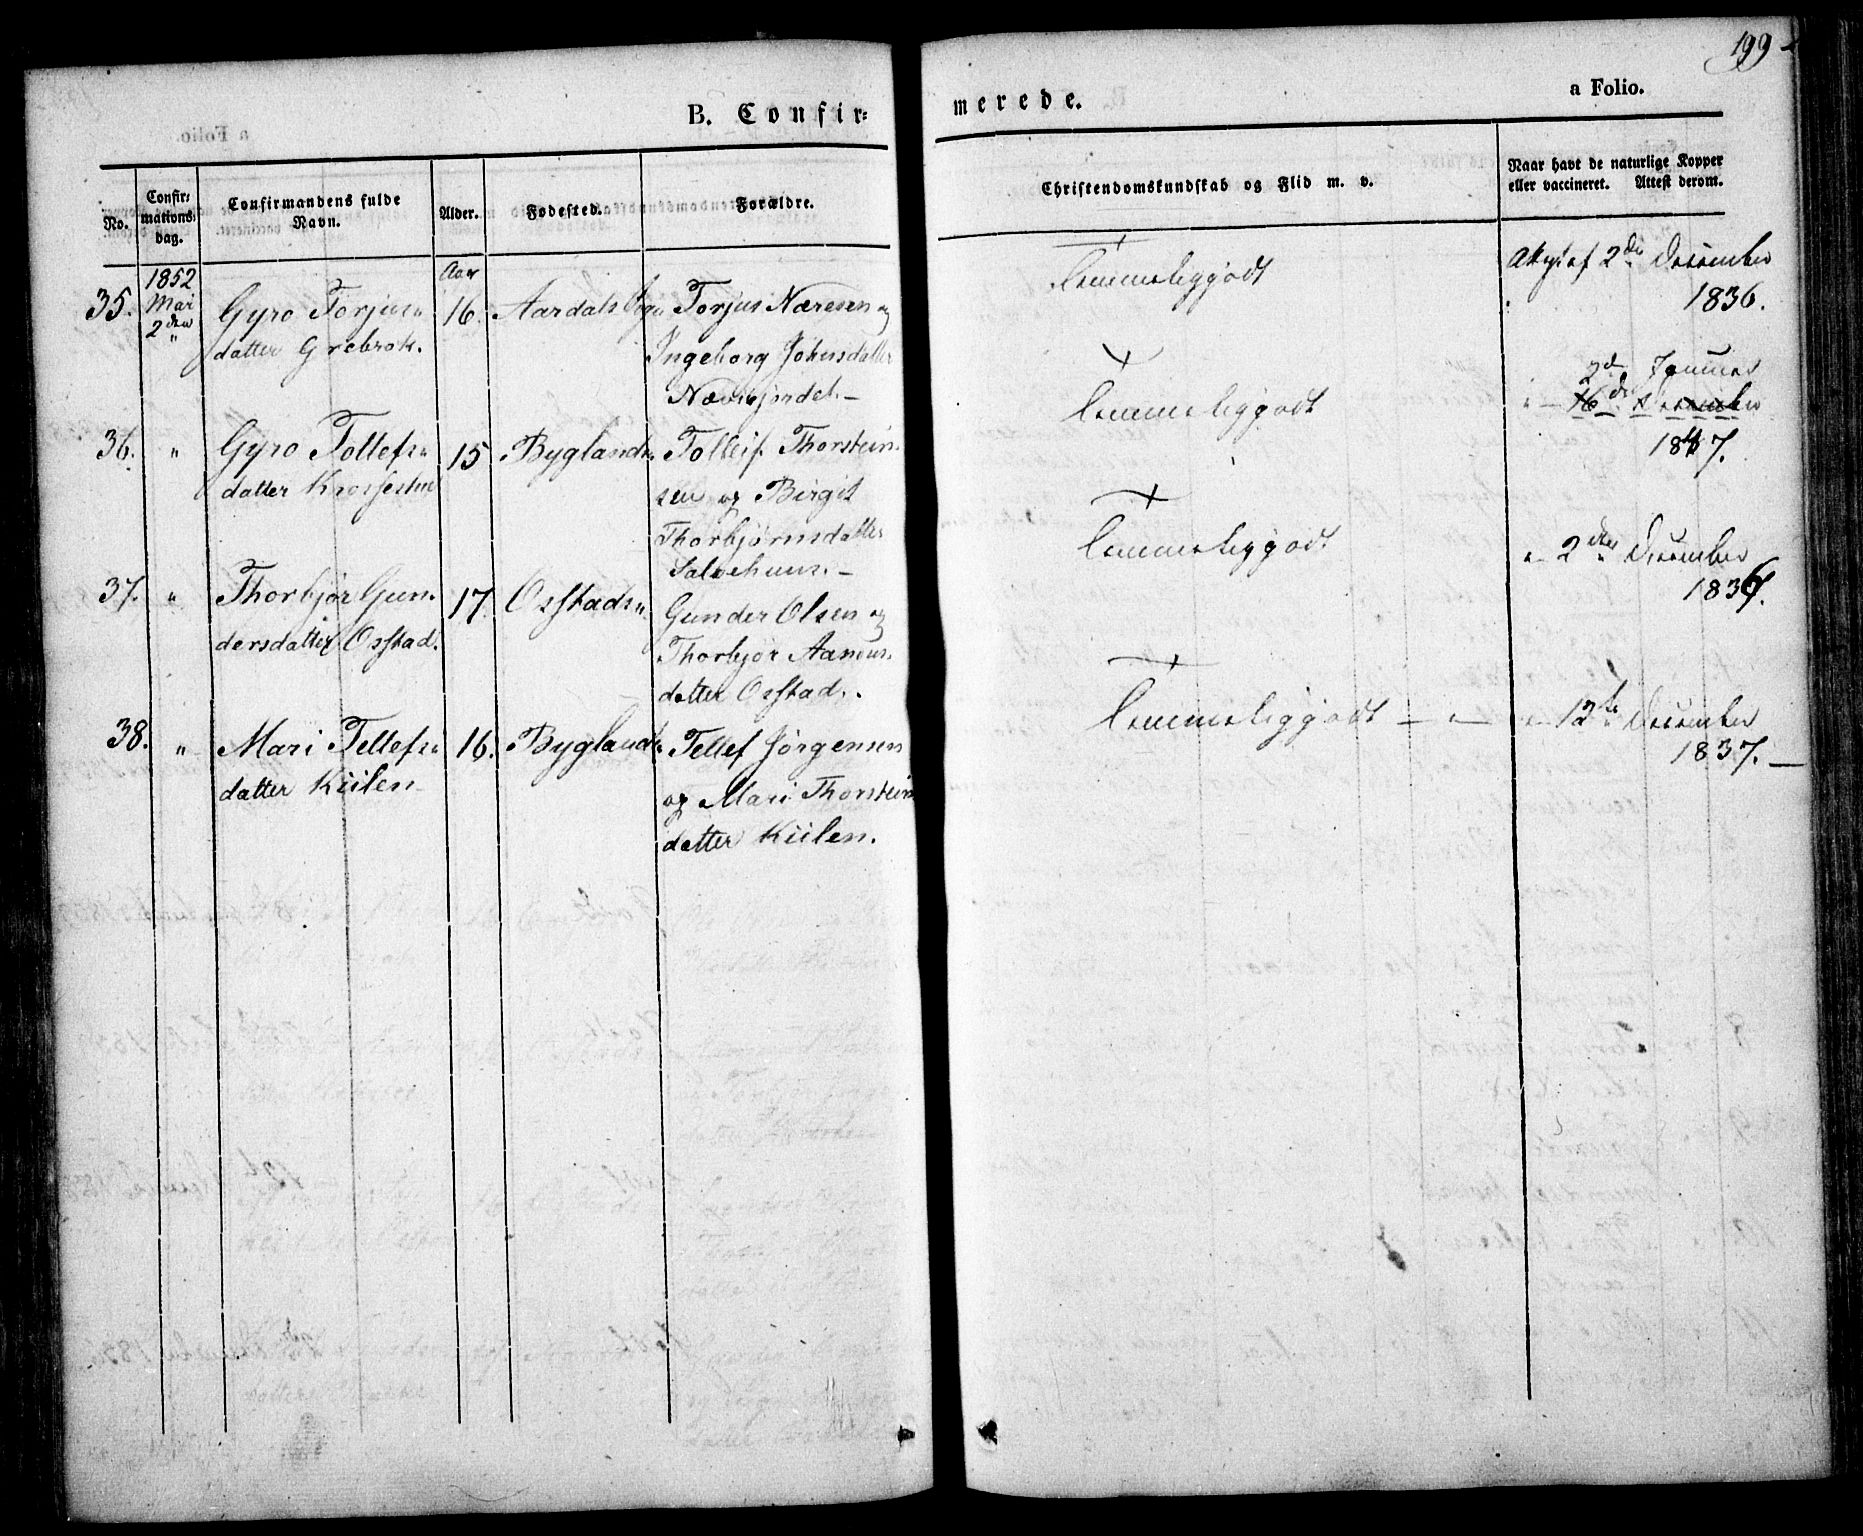 199
B. Confir=
merede.
a Folio.
No.
Confir=
mations
dag.
Confirmandens fulde
Navn.
Alder.
Fødested.
Forældre.
Christendomskundskab og Flid m. v.
Naar havt de naturlige Kopper
eller vaccineret. Attest derom.
35.
1852
Mai
2den
"
Gyro Torjus"
datter Grebrok.
Aar
16.
Aardals
Torjus Næresen og
Ingeborg Johnsdatter
temmeliggodt
2den December
1836.
36.
"
Gyro Tollefs"
datter
15
Byglands"
Tolleif Thorstein"
sen og Birgit
Thorbjørnsdatter
temmeliggodt
2den Januar
16de December
37.
"
Thorbjør Gun"
dersdatter Osstad.
17
Osstads"
Gunder Olsen og
Thorbjør Aanons"
datter Osstad.
temmeliggodt
" 2den December
38.
"
Mari Tellefs"
datter Kiilen
16.
Byglands"
Tellef Jørgensen
og Mari Thorsteins
datter Kiilen.
temmeliggodt — " — " — 12te December
1837. —